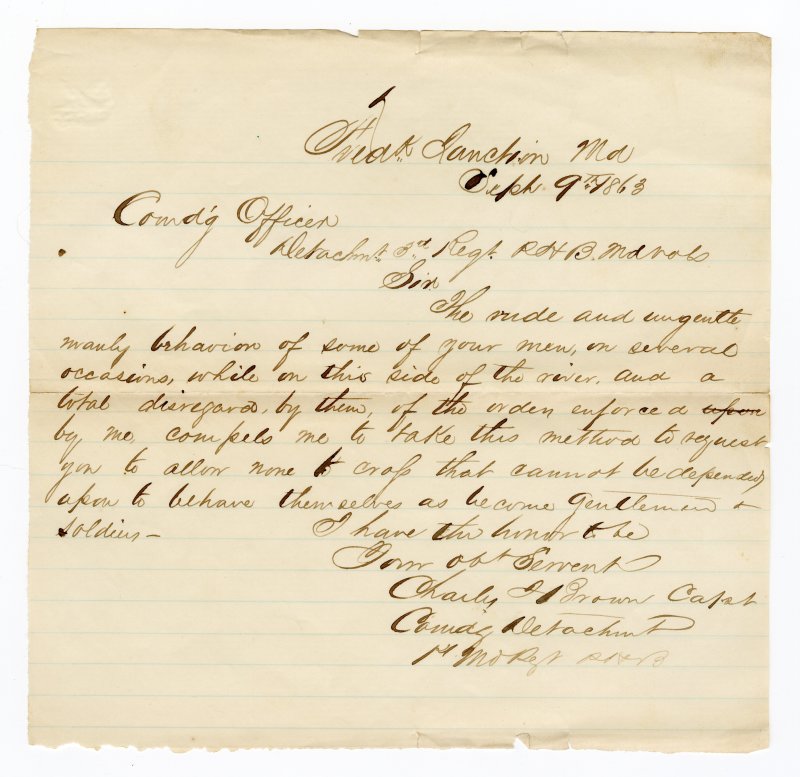 Fredk. Junction Md
Sept. 9th 1863
Comd'g Officer
Detachmt. 3rd Regt. P H B. Md vols.
Sir
The rude and ungentle
manly behavior of some of your men, on several
occasions, while on this side of the river. and a
total disregard, by them, of the order enforced upon
by me, compels me to take this method to request
you to allow none to cross that cannot be depended
upon to behave themselves as become gentlemen &
soldiers —
I have the honor to be
Your obt Servent
Charles Brown Capt
Comd'g Detachmt
1st Md Regt P H B